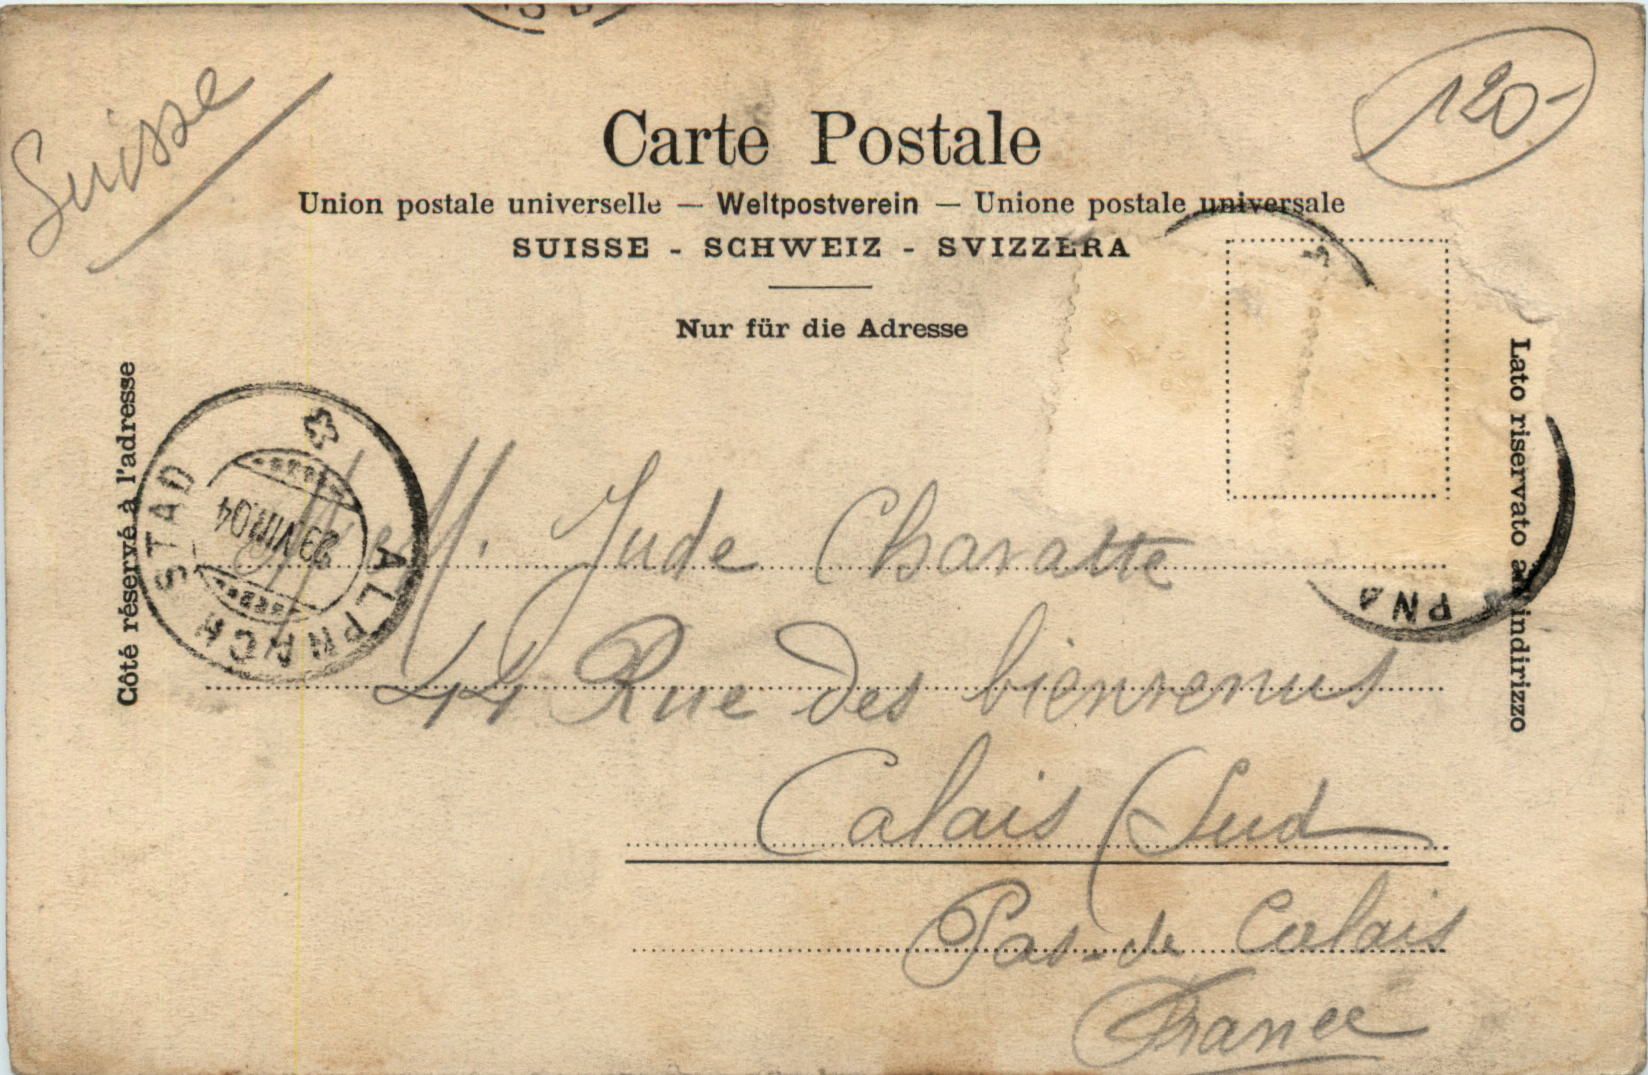 Suisse
120-
Carte Postale
Union postale universelle — Weltpostverein — Unione postale universale
SUISSE - SCHWEIZ - SVIZZERA
Nur für die Adresse
Côté réservé à l'adresse
Lato riservato all'indirizzo
ALPNACH STAD
23.VIII.04
PNA
M. Jude Charatte
44 Rue des bienvenus
Calais (Sud
Pas-de Calais
France